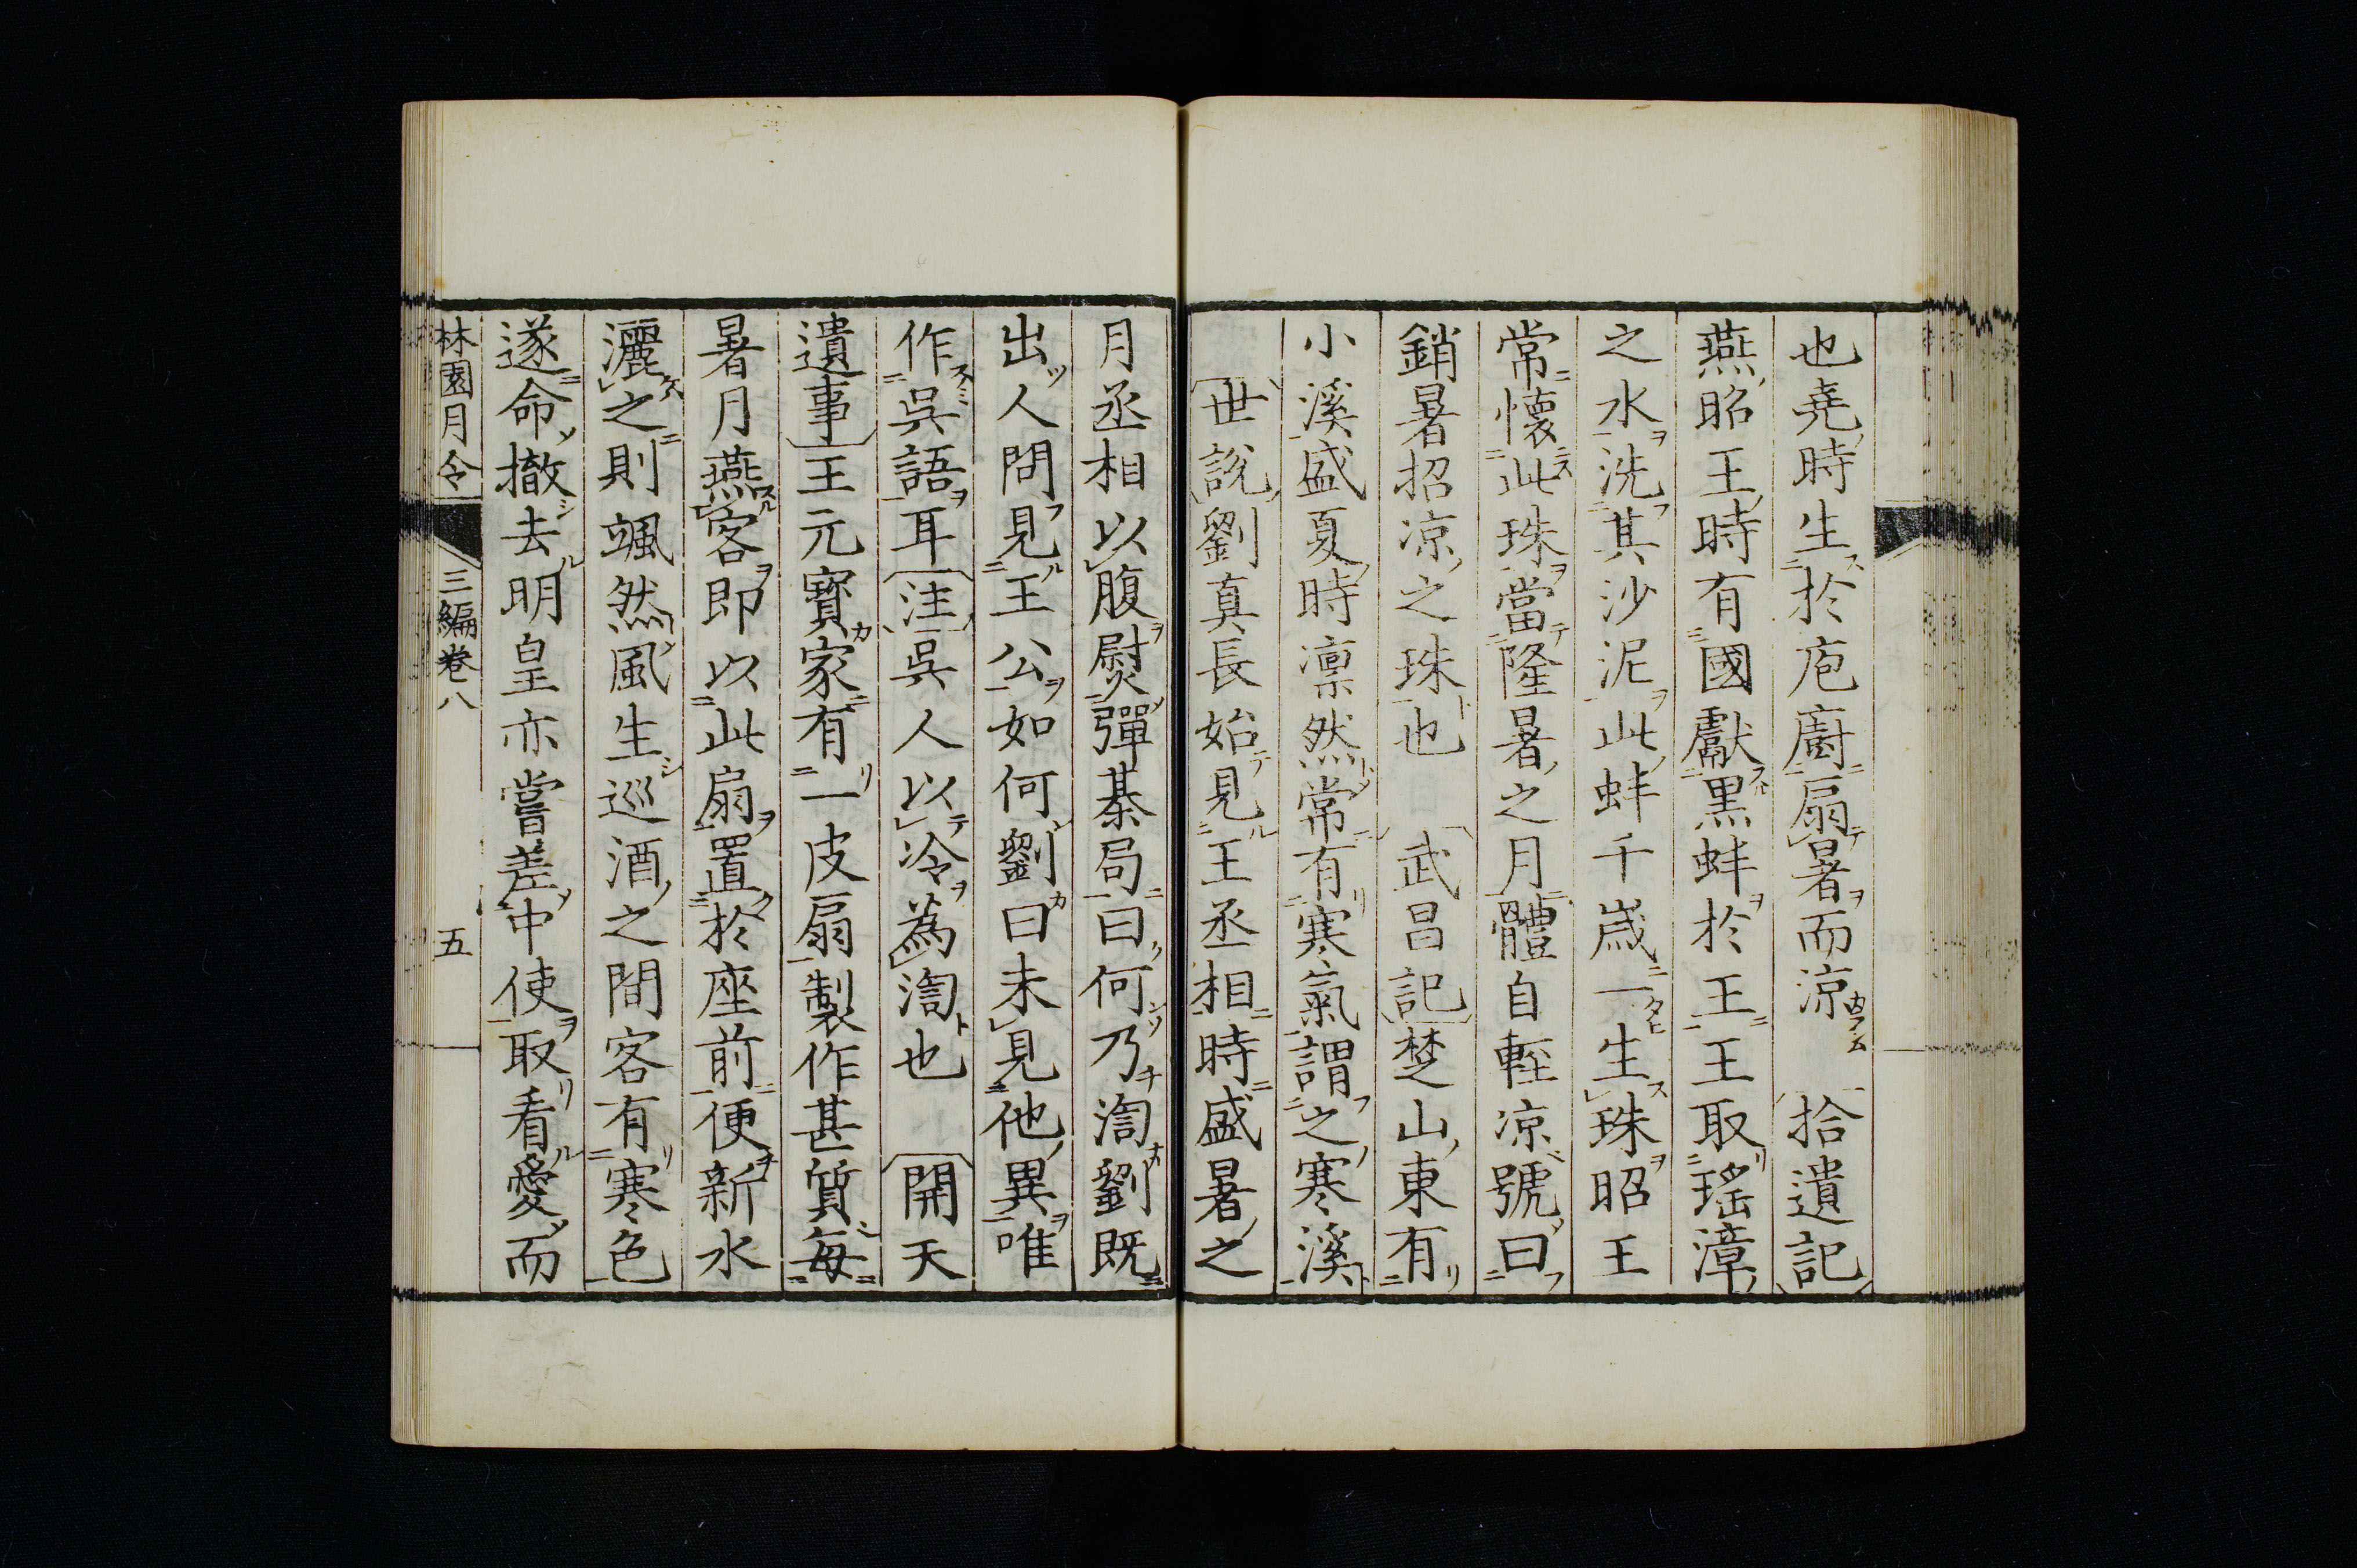 也堯時生於庖廚扇暑而涼 拾遺記
燕昭王時有國獻黒蚌於王王取瑤漳
之水洗其沙泥此蚌千歳一生珠昭王
常懷此珠當隆暑之月體自輕凉號曰
銷暑招凉之珠也 武昌記楚山東有
小溪盛夏時凛然常有寒氣謂之寒溪
世說劉真長始見王丞相時盛暑之
月丞相以腹熨彈棊局曰何乃渹劉既
出人問見王公如何劉曰未見他異唯
作吳語耳注吳人以冷為渹也 開天
遺事王元寶家有一皮扇製作甚質每
暑月燕客即以此扇置於座前便新水
灑之則颯然風生巡酒之間客有寒色
遂命撤去明皇亦嘗差中使取看愛而
林園月令 三編卷八 五